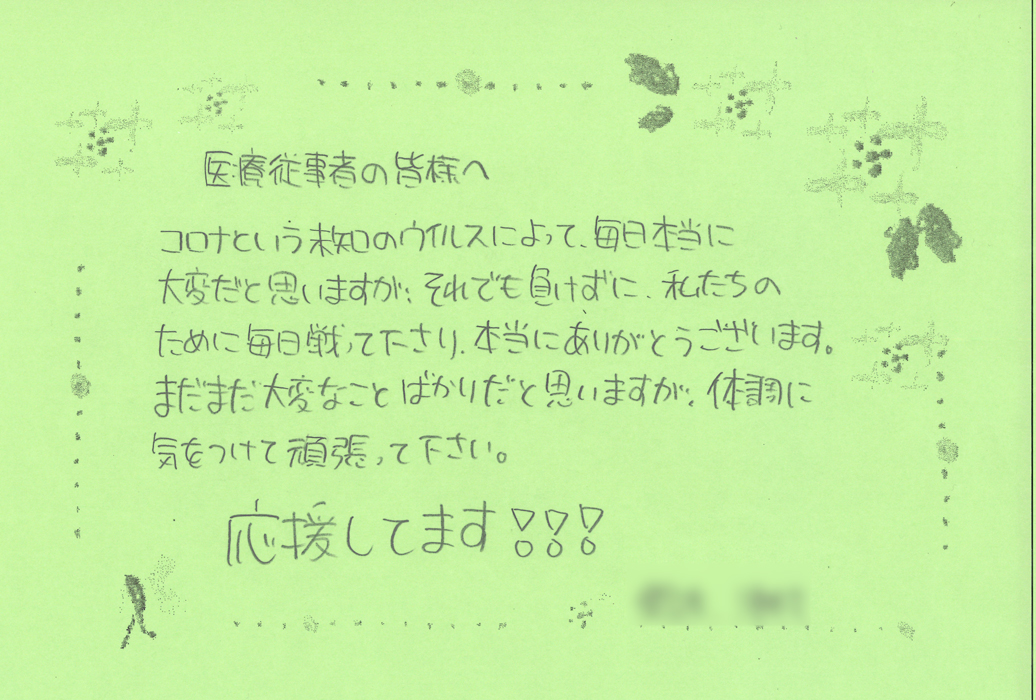 医療従事者の皆様へ
コロナという未知のウイルスによって、毎日本当に
大変だと思いますが、それでも負けずに、私たちの
ために毎日戦って下さり、本当にありがとうございます。
まだまだ大変なことばかりだと思いますが、体調に
気をつけて頑張って下さい。
応援してます!!!